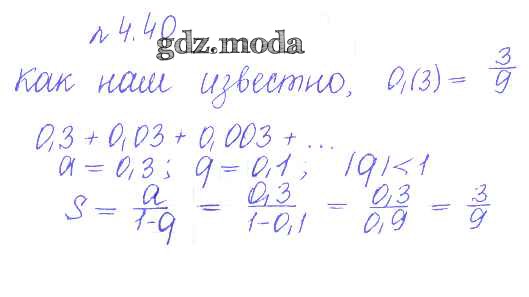 № 4.40
gdz.moda
Как нам известно, 0,(3) = 3/9
0,3 + 0,03 + 0,003 + ...
a = 0,3; q = 0,1; |q| < 1
S = a/1-q = 0,3/1-0,1 = 0,3/0,9 = 3/9